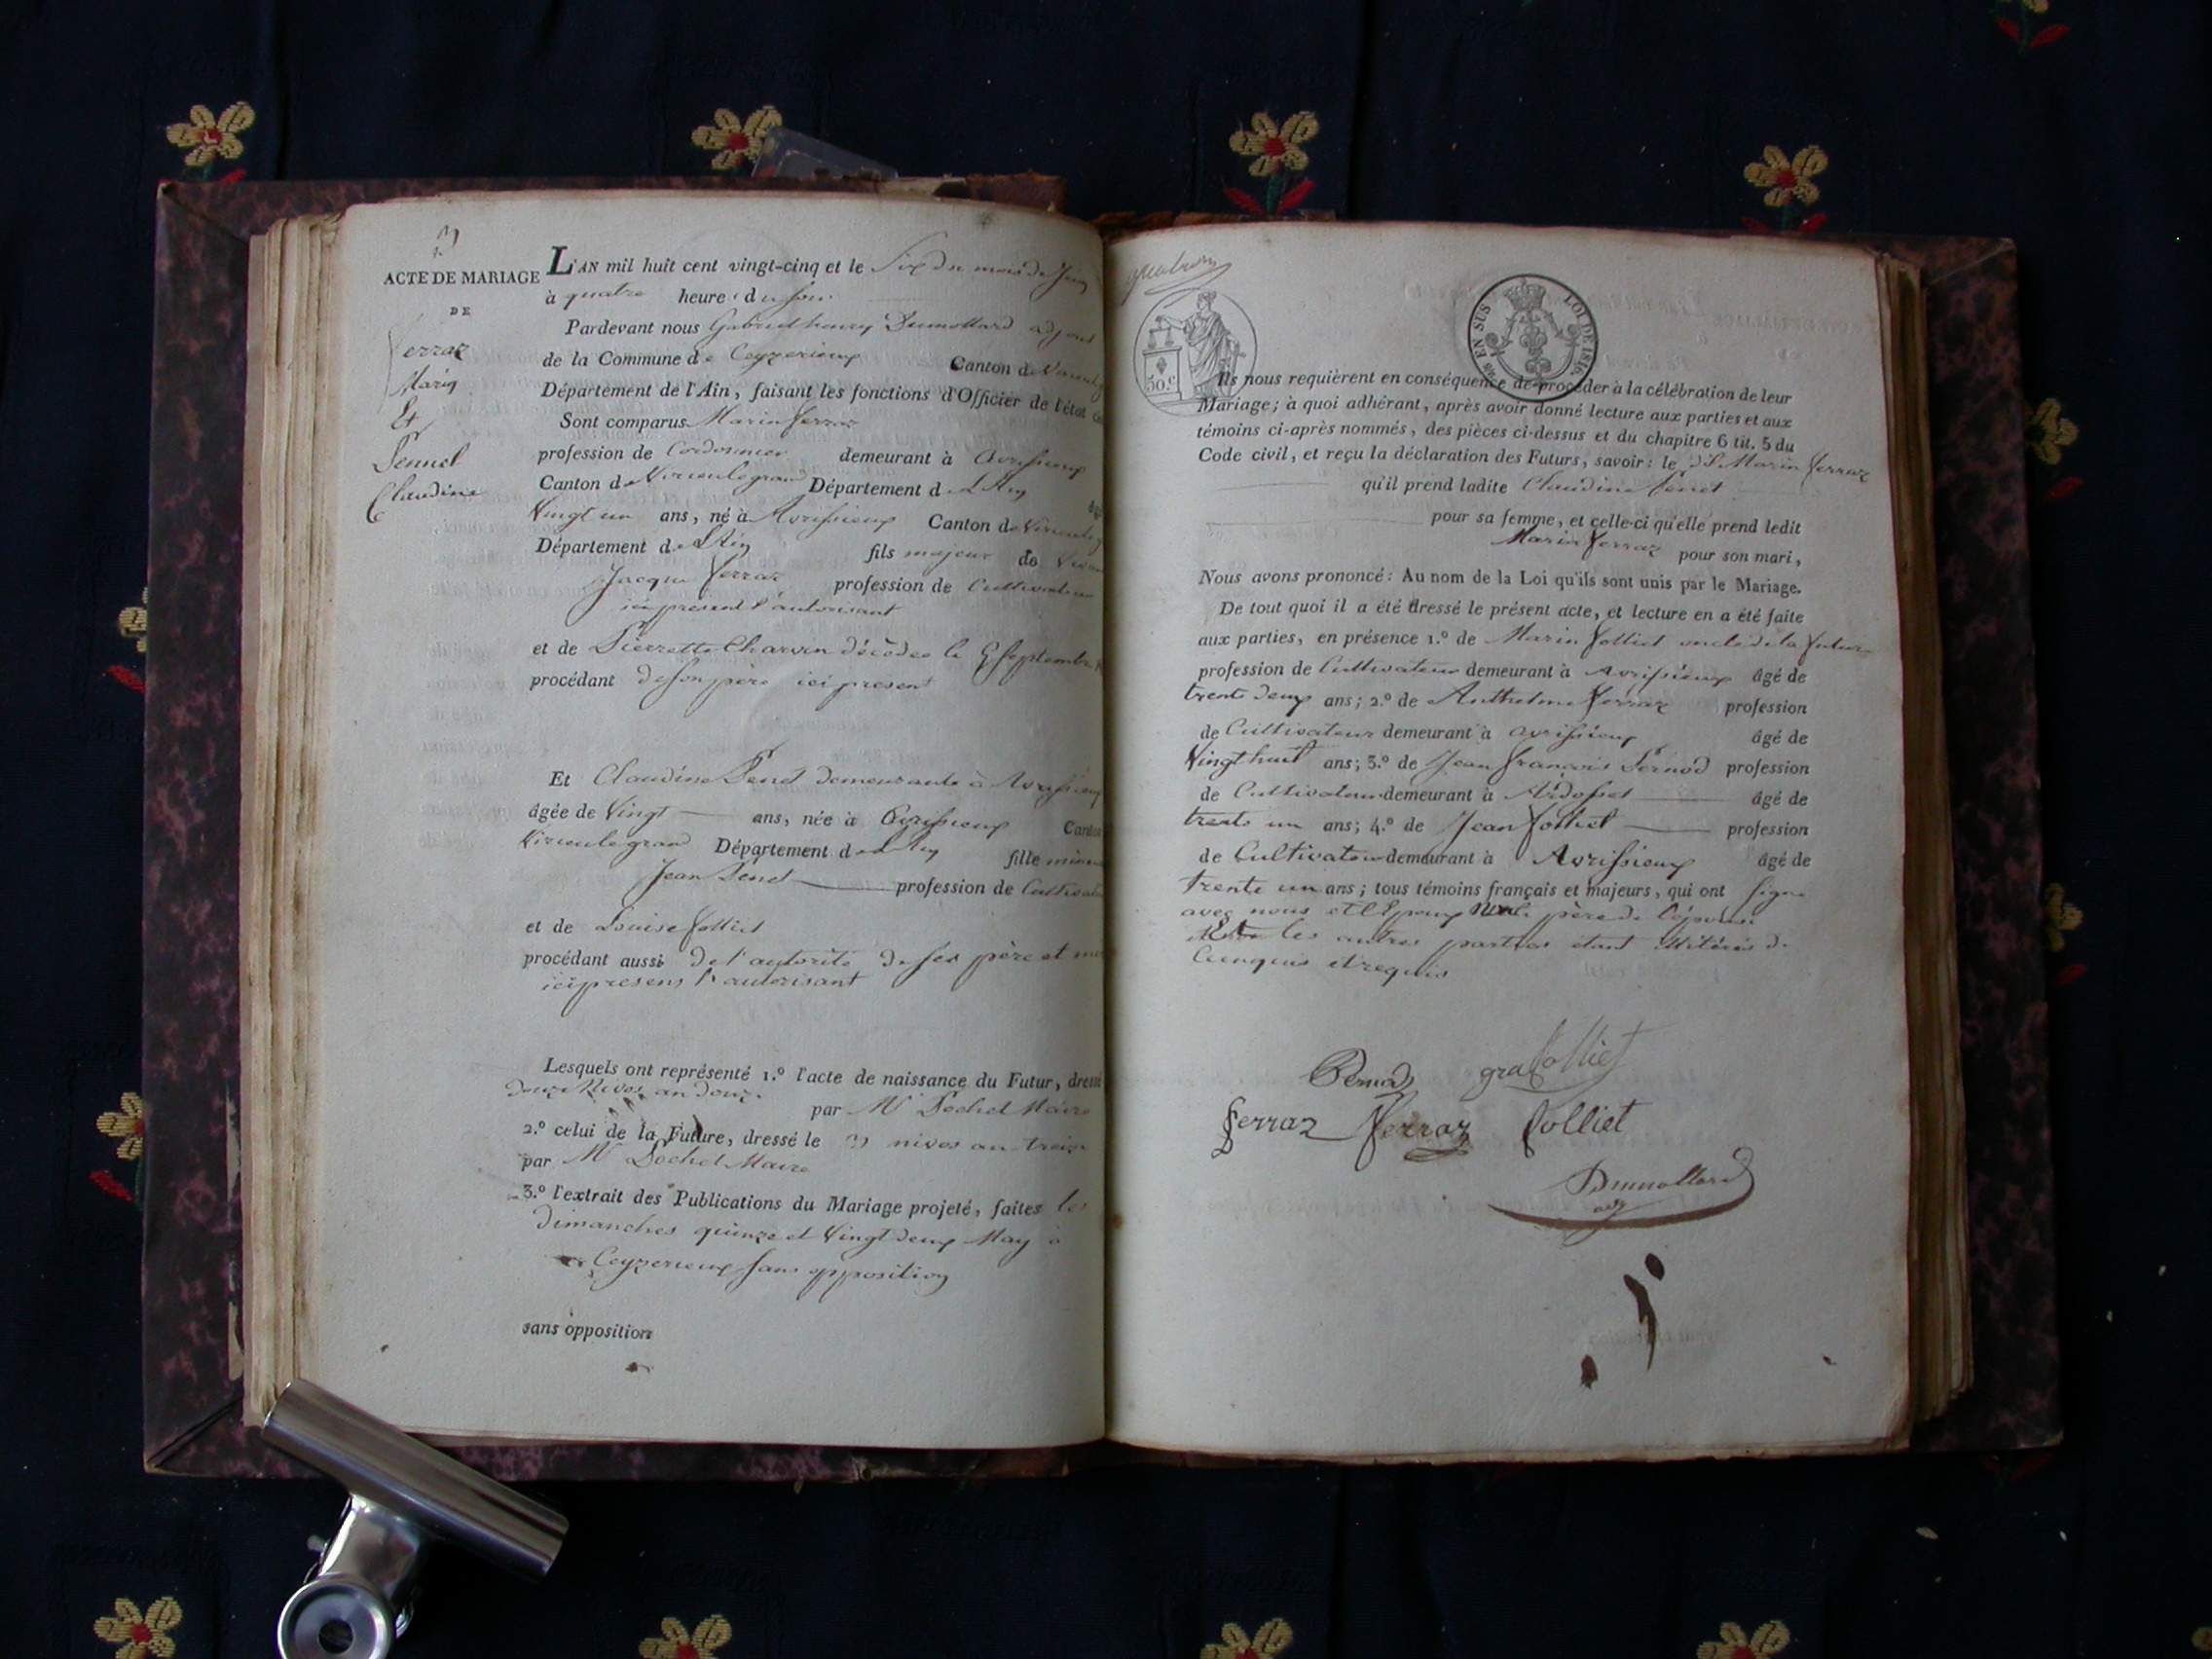 ACTE DE MARIAGE
DE
Ferraz
Marin
Et
Pennet
Claudine
L'AN mil huit cent vingt-cinq et le Six du mois de Juin
à quatre heure du soir
Pardevant nous Gabriel henry Dumollard adjoint
de la Commune de Ceyzerieux Canton de
Département de l'Ain, faisant les fonctions d'Officier de l'état
Sont comparus Marin ferraz
profession de Cordonnier demeurant à Avrissieux
Canton de Virieulegrand Département de L'Ain
Vingt un ans, né à Avrissieux Canton de
Département de L'Ain fils majeur de
Jacque ferraz profession de Cultivateur
ici present l'autorisant
et de Pierrette Charvin décédee le 9 septembre
procédant de son père ici present
Et Claudine Penet demeurante à Avrissieux
âgée de Vingt ans, née à Avrissieux Canton
Virieulegrand Département de L'Ain fille
Jean Penet profession de
et de Louise folliet
procédant aussi de l'autorité de ses père et
ici presens l'autorisant
Lesquels ont représenté 1.º l'acte de naissance du Futur, dressé
douze Nivos an douze par Mr Dochet Maire
2.º celui de la Future, dressé le nivos an treize
par Mr Dochet Maire
3.º l'extrait des Publications du Mariage projeté, faites les
dimanches quinze et Vingt deux May à
Ceyzerieux sans opposition
sans opposition
50 c.
EN SUS
LOI DE 1816.
Ils nous requièrent en conséquence de procéder à la célébration de leur
Mariage; à quoi adhérant, après avoir donné lecture aux parties et aux
témoins ci-après nommés, des pièces ci-dessus et du chapitre 6 tit. 5 du
Code civil, et reçu la déclaration des Futurs, savoir: le dt Marin ferraz
qu'il prend ladite Claudine Penet
pour sa femme, et celle-ci qu'elle prend ledit
Marin ferraz pour son mari,
Nous avons prononcé: Au nom de la Loi qu'ils sont unis par le Mariage.
De tout quoi il a été dressé le présent acte, et lecture en a été faite
aux parties, en présence 1.º de Marin folliet oncle de la future
profession de Cultivateur demeurant à Avrissieux âgé de
trente deux ans; 2.º de Anthelme ferraz profession
de Cultivateur demeurant à avrissieux âgé de
Vingt huit ans; 3.º de Jean françois Pernod profession
de Cultivateur demeurant à Ardosset âgé de
trente un ans; 4.º de Jean folliet profession
de Cultivateur demeurant à Avrissieux âgé de
trente un ans; tous témoins français et majeurs, qui ont signé
avec nous et l'Epoux père de l'épouse
les autres parties étant illitérés de
ce enquis et requis
Pernod folliet
ferraz ferraz folliet
Dumollard
adj